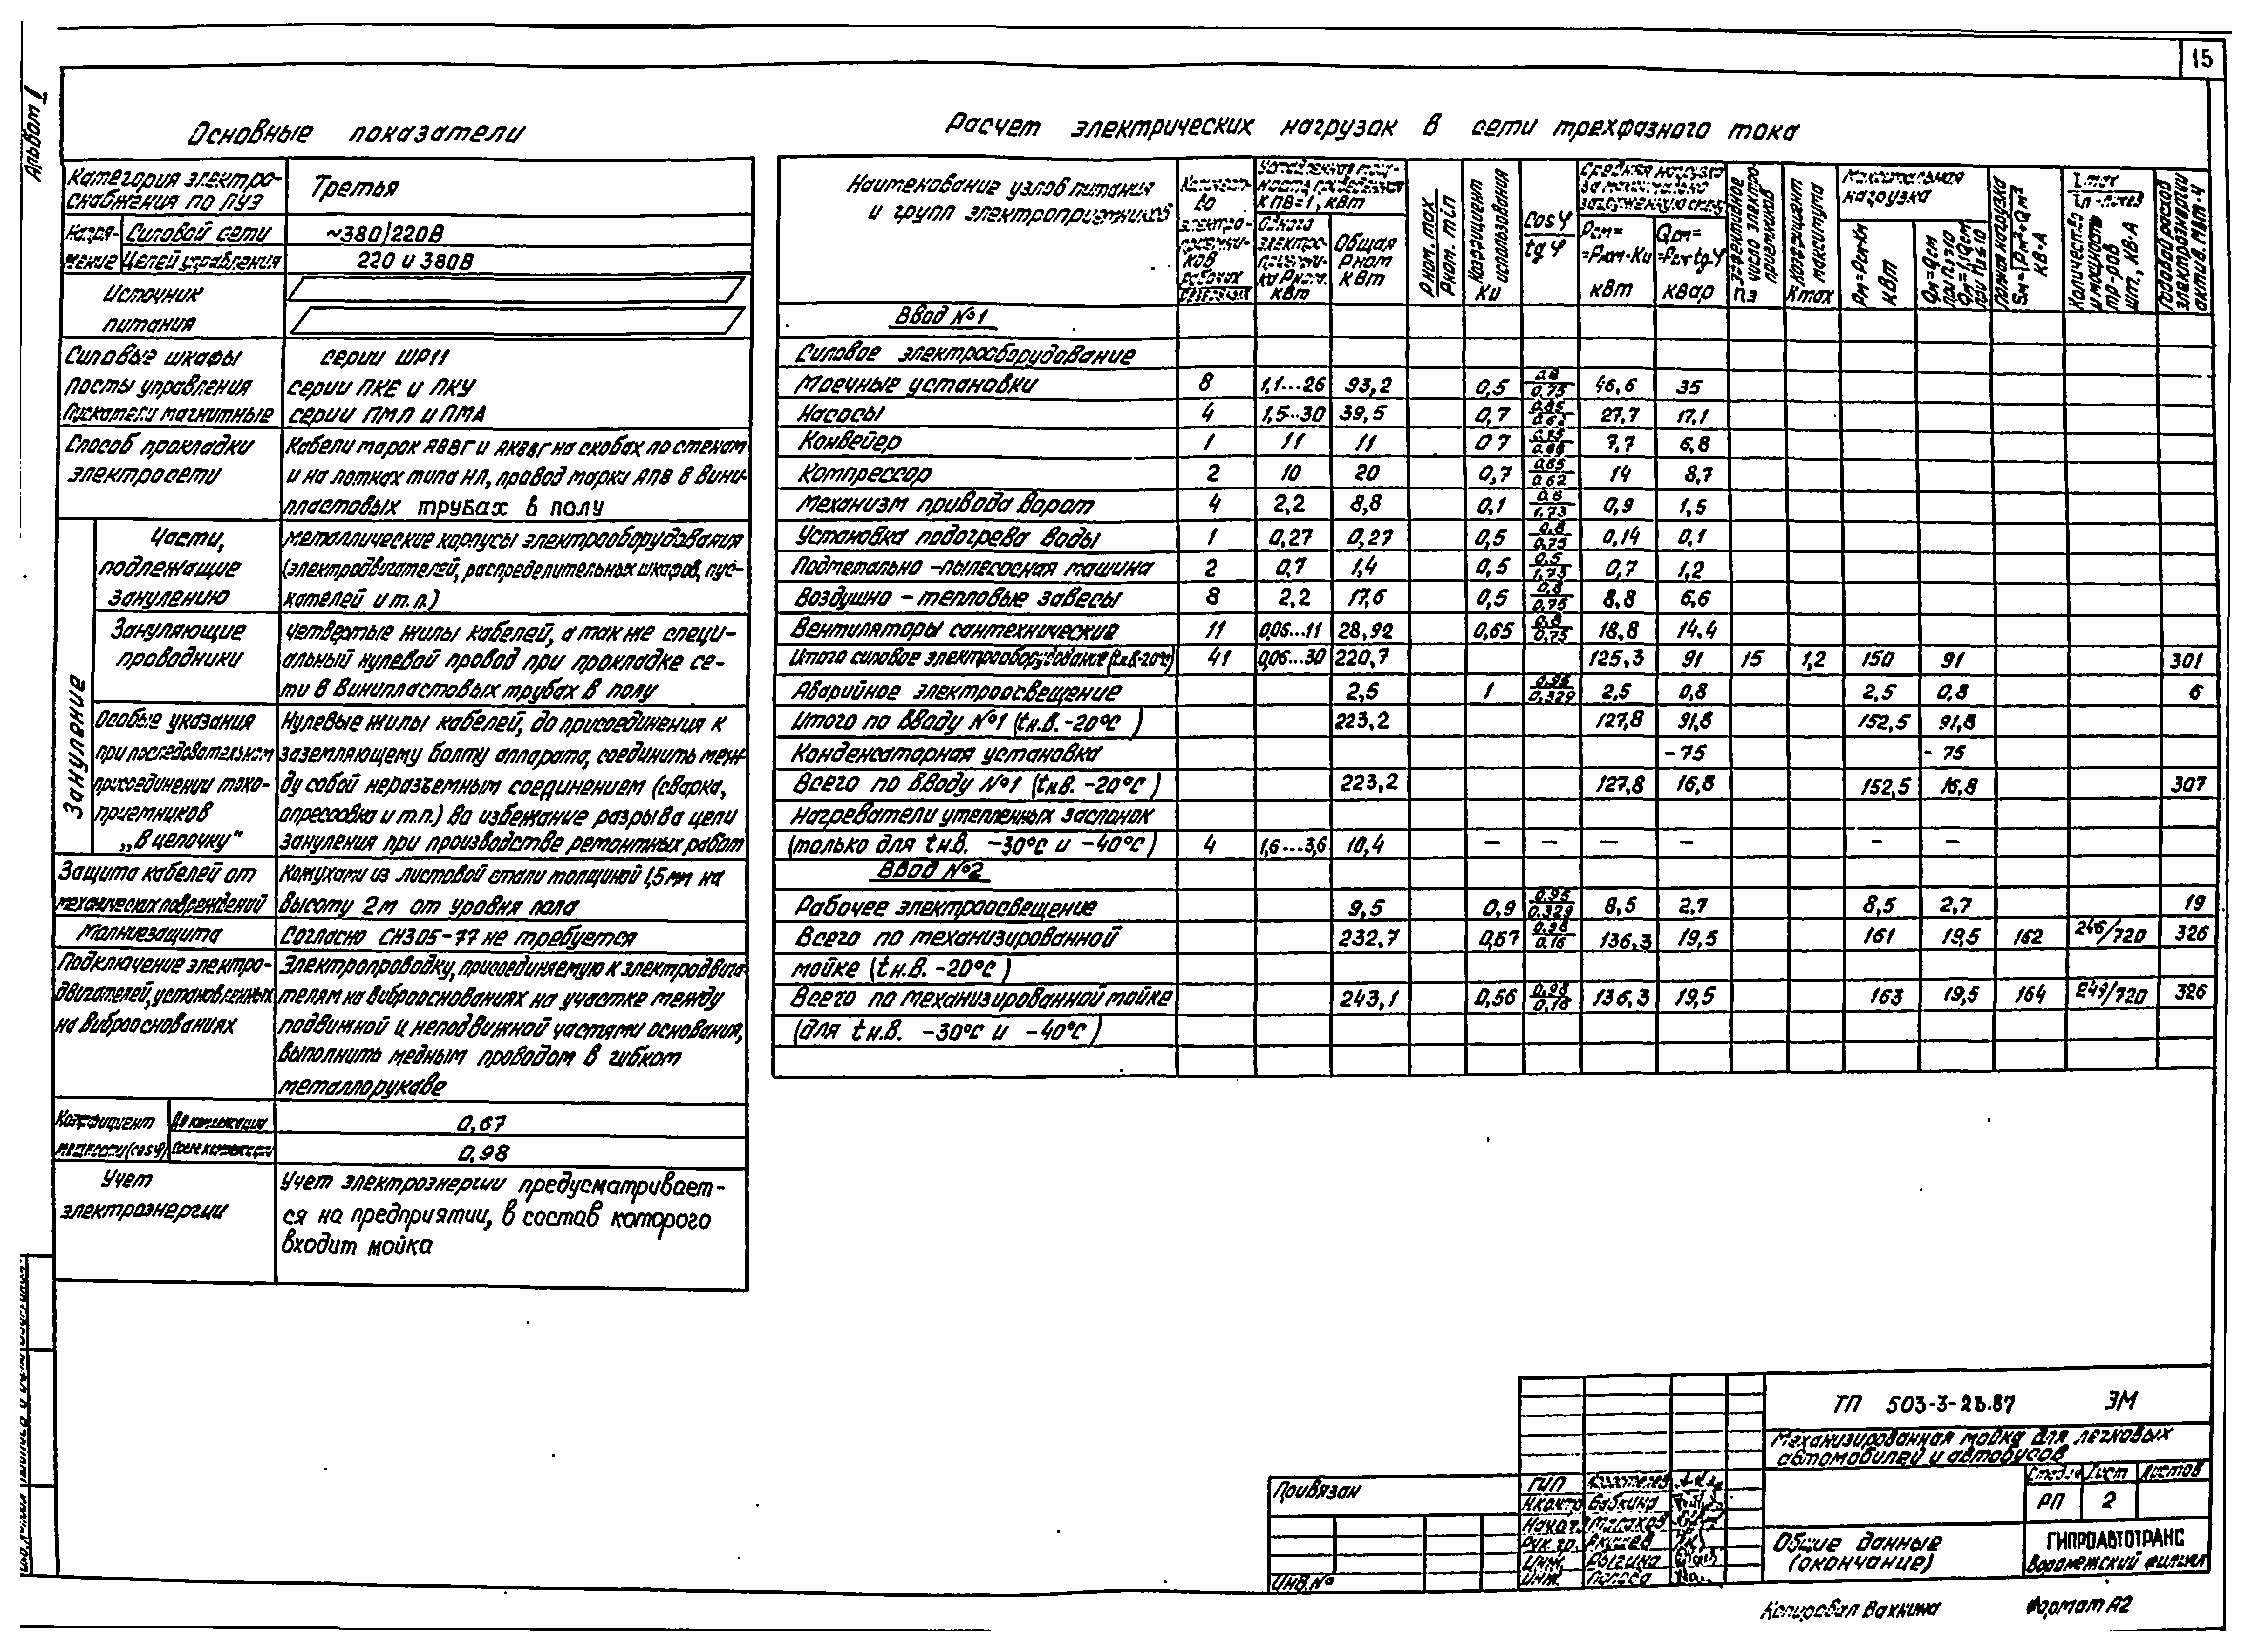 15
Альбом I
Основные показатели
Категория электро-
снабжения по ПУЭ
Третья
Напря-
жение
Силовой сети
~380/220В
Цепей управления
220 и 380В
Источник
питания
Силовые шкафы
серии ШР11
Посты управления
серии ПКЕ и ПКУ
Пускатели магнитные
серии ПМЛ и ПМА
Способ прокладки
электросети
Кабели марок АВВГ и АКВВГ на скобах по стенам
и на лотках типа НЛ, провод марки АПВ в вини-
пластовых трубах в полу
Зануление
Части,
подлежащие
занулению
металлические корпусы электрооборудования
(электродвигателей, распределительных шкафов, пус-
кателей и т.п.)
Зануляющие
проводники
четвертые жилы кабелей, а так же специ-
альный нулевой провод при прокладке се-
ти в винипластовых трубах в полу
Особые указания
при последовательном
присоединении токо-
приемников
„в цепочку"
Нулевые жилы кабелей, до присоединения к
заземляющему болту аппарата, соединить меж-
ду собой неразъемным соединением (сварка,
опрессовка и т.п.) во избежание разрыва цепи
зануления при производстве ремонтных работ
Защита кабелей от
механических повреждений
Кожухами из листовой стали толщиной 1,5мм на
высоту 2м от уровня пола
Молниезащита
Согласно СН305-77 не требуется
Подключение электро-
двигателей, установленных
на виброоснованиях
Электропроводку, присоединяемую к электродвига-
телям на виброоснованиях на участке между
подвижной и неподвижной частями основания,
выполнить медным проводом в гибком
металлорукаве
Коэффициент
мощности (cosφ)
До компенсации
0,67
После компенсации
0,98
Учет
электроэнергии
Учет электроэнергии предусматривает-
ся на предприятии, в состав которого
входит мойка
Расчет электрических нагрузок в сети трехфазного тока
Наименование узлов питания
и групп электроприемников
Количест-
во
электро-
приемни-
ков
рабочих
Установленная мощ-
ность приведенная
к ПВ=1, кВт
Одного
электро-
приемни-
ка Рном.
кВт
Общая
Рном
кВт
Рном. max
Рном. min
Коэффициент
использования
Ки
Cosφ
tgφ
Средняя нагрузка
за максимально
загруженную смену
Рсм=
=Рном·Ки
кВт
Qсм=
=Рсм tgφ
квар
Эффективное
число электро-
приемников
nэ
Коэффициент
максимума
Кmax
Максимальная
нагрузка
Рм=Рсм·Км
кВт
Qм=Qсм
при nэ>10
Qм=1,1Qсм
при nэ≤10
Полная нагрузка
Sм=√Рм²+Qм²
кВ·А
Количество
и мощность
тр-ров
шт., кВ·А
Годовой расход
электроэнергии
актив. МВт·ч
Ввод №1
Силовое электрооборудование
Моечные установки 8 1,1...26 93,2 0,5 0,8/0,75 46,6 35
Насосы 4 1,5...30 39,5 0,7 0,85/0,62 27,7 17,1
Конвейер 1 11 11 0,7 7,7 6,8
Компрессор 2 10 20 0,7 0,85/0,62 14 8,7
Механизм привода ворот 4 2,2 8,8 0,1 0,6/1,73 0,9 1,5
Установка подогрева воды 1 0,27 0,27 0,5 0,8/0,75 0,14 0,1
Подметально-пылесосная машина 2 0,7 1,4 0,5 0,5/1,73 0,7 1,2
Воздушно-тепловые завесы 8 2,2 17,6 0,5 0,8/0,75 8,8 6,6
Вентиляторы сантехнические 11 0,06...11 28,92 0,65 0,8/0,75 18,8 14,4
Итого силовое электрооборудование (tн.в.-20°С) 41 0,06...30 220,7 125,3 91 15 1,2 150 91 301
Аварийное электроосвещение 2,5 1 0,95/0,329 2,5 0,8 2,5 0,8 6
Итого по вводу №1 (tн.в. -20°С) 223,2 127,8 91,8 152,5 91,8
Конденсаторная установка -75 -75
Всего по вводу №1 (tн.в. -20°С) 223,2 127,8 16,8 152,5 16,8 307
Нагреватели утепленных заслонок
(только для tн.в. -30°С и -40°С) 4 1,6...3,6 10,4 — — — — — —
Ввод №2
Рабочее электроосвещение 9,5 0,9 0,95/0,329 8,5 2,7 8,5 2,7 19
Всего по механизированной 232,7 0,57 0,98/0,16 136,3 19,5 161 19,5 162 246/720 326
мойке (tн.в. -20°С)
Всего по механизированной мойке 243,1 0,56 0,98/0,16 136,3 19,5 163 19,5 164 249/720 326
(для tн.в. -30°С и -40°С)
ТП 503-3-28.87 ЭМ
Механизированная мойка для легковых
автомобилей и автобусов
Стадия Лист Листов
РП 2
Общие данные
(окончание)
ГИПРОАВТОТРАНС
Воронежский филиал
Привязан
ИНВ.№
ГИП
Н.контр. Бабкина
Нач.отд. Малахов
Рук.гр. Якишев
Инж. Рыгина
Инж. Попова
Копировал Вахнина
Формат А2